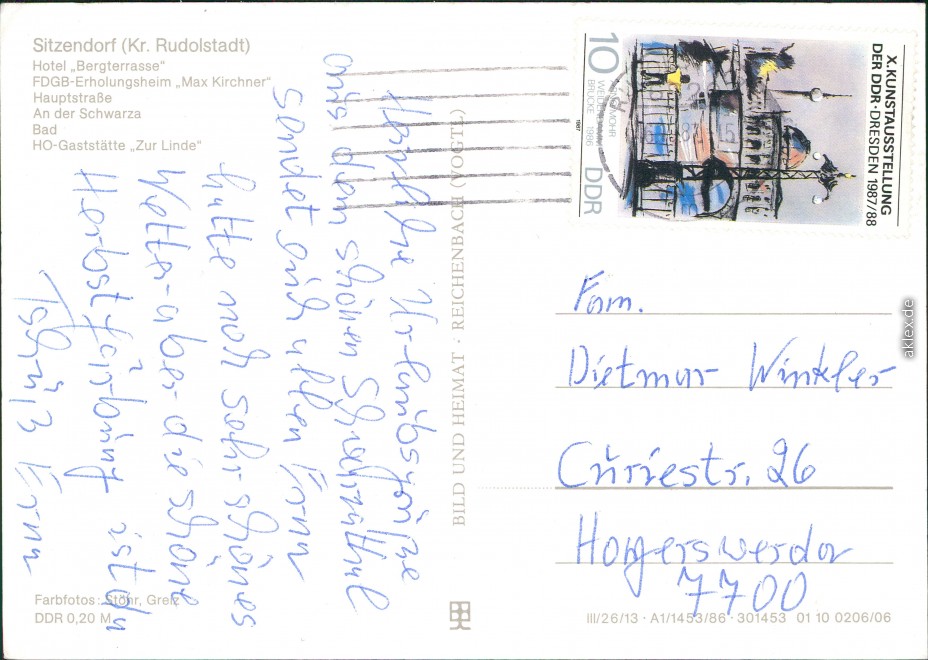 Sitzendorf (Kr. Rudolstadt)
Hotel „Bergterrasse“
FDGB-Erholungsheim „Max Kirchner“
Hauptstraße
An der Schwarza
Bad
HO-Gaststätte „Zur Linde“
Herzliche Urlaubsgrüße
aus dem schönen Schwarzathal
sendet euch allen Erna
hatte noch sehr schönes
Wetter aber die schöne
Herbstfärbung ist da
Tschüß Erna
Farbfotos: Stöhr, Greiz
DDR 0,20 M
BILD UND HEIMAT · REICHENBACH (VOGTL)
X. KUNSTAUSSTELLUNG
DER DDR · DRESDEN 1987/88
WEIDENDAMM
BRÜCKE 1986
1987
10 DDR
Fam.
Dietmar Winkler
Curiestr. 26
Hoyerswerda
7700
III/26/13 · A1/1453/86 · 301453 01 10 0206/06
aklex.de